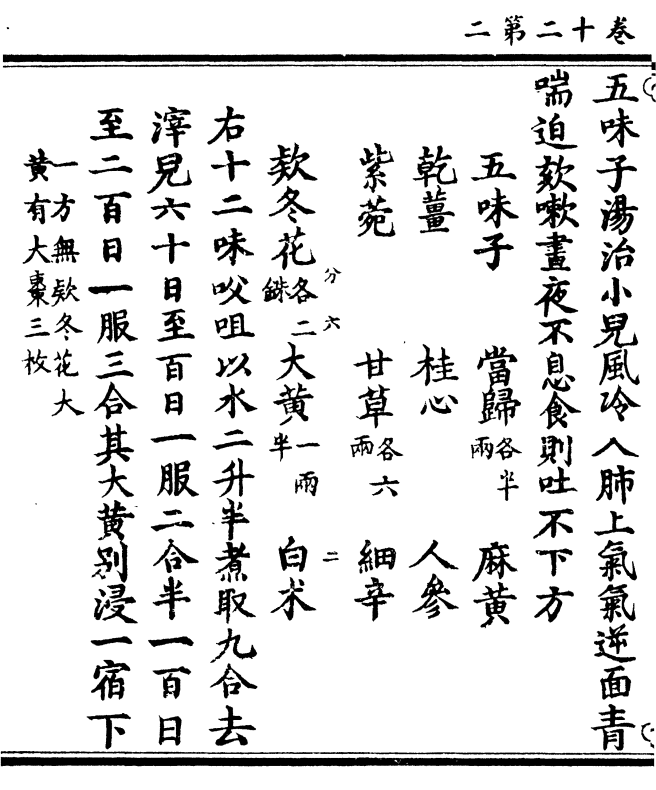 卷十二第二
五味子湯治小兒風冷入肺上氣氣逆面青
喘迫欬嗽晝夜不息食則吐不下方
五味子 當歸各半兩 麻黃
乾薑 桂心 人參
紫菀 甘草各六兩 細辛
分六 二
欵冬花各二銖 大黃一兩半 白朮
右十二味㕮咀以水二升半煮取九合去
滓兒六十日至百日一服二合半一百日
至二百日一服三合其大黃別浸一宿下
一方無欵冬花大
黃有大棗三枚